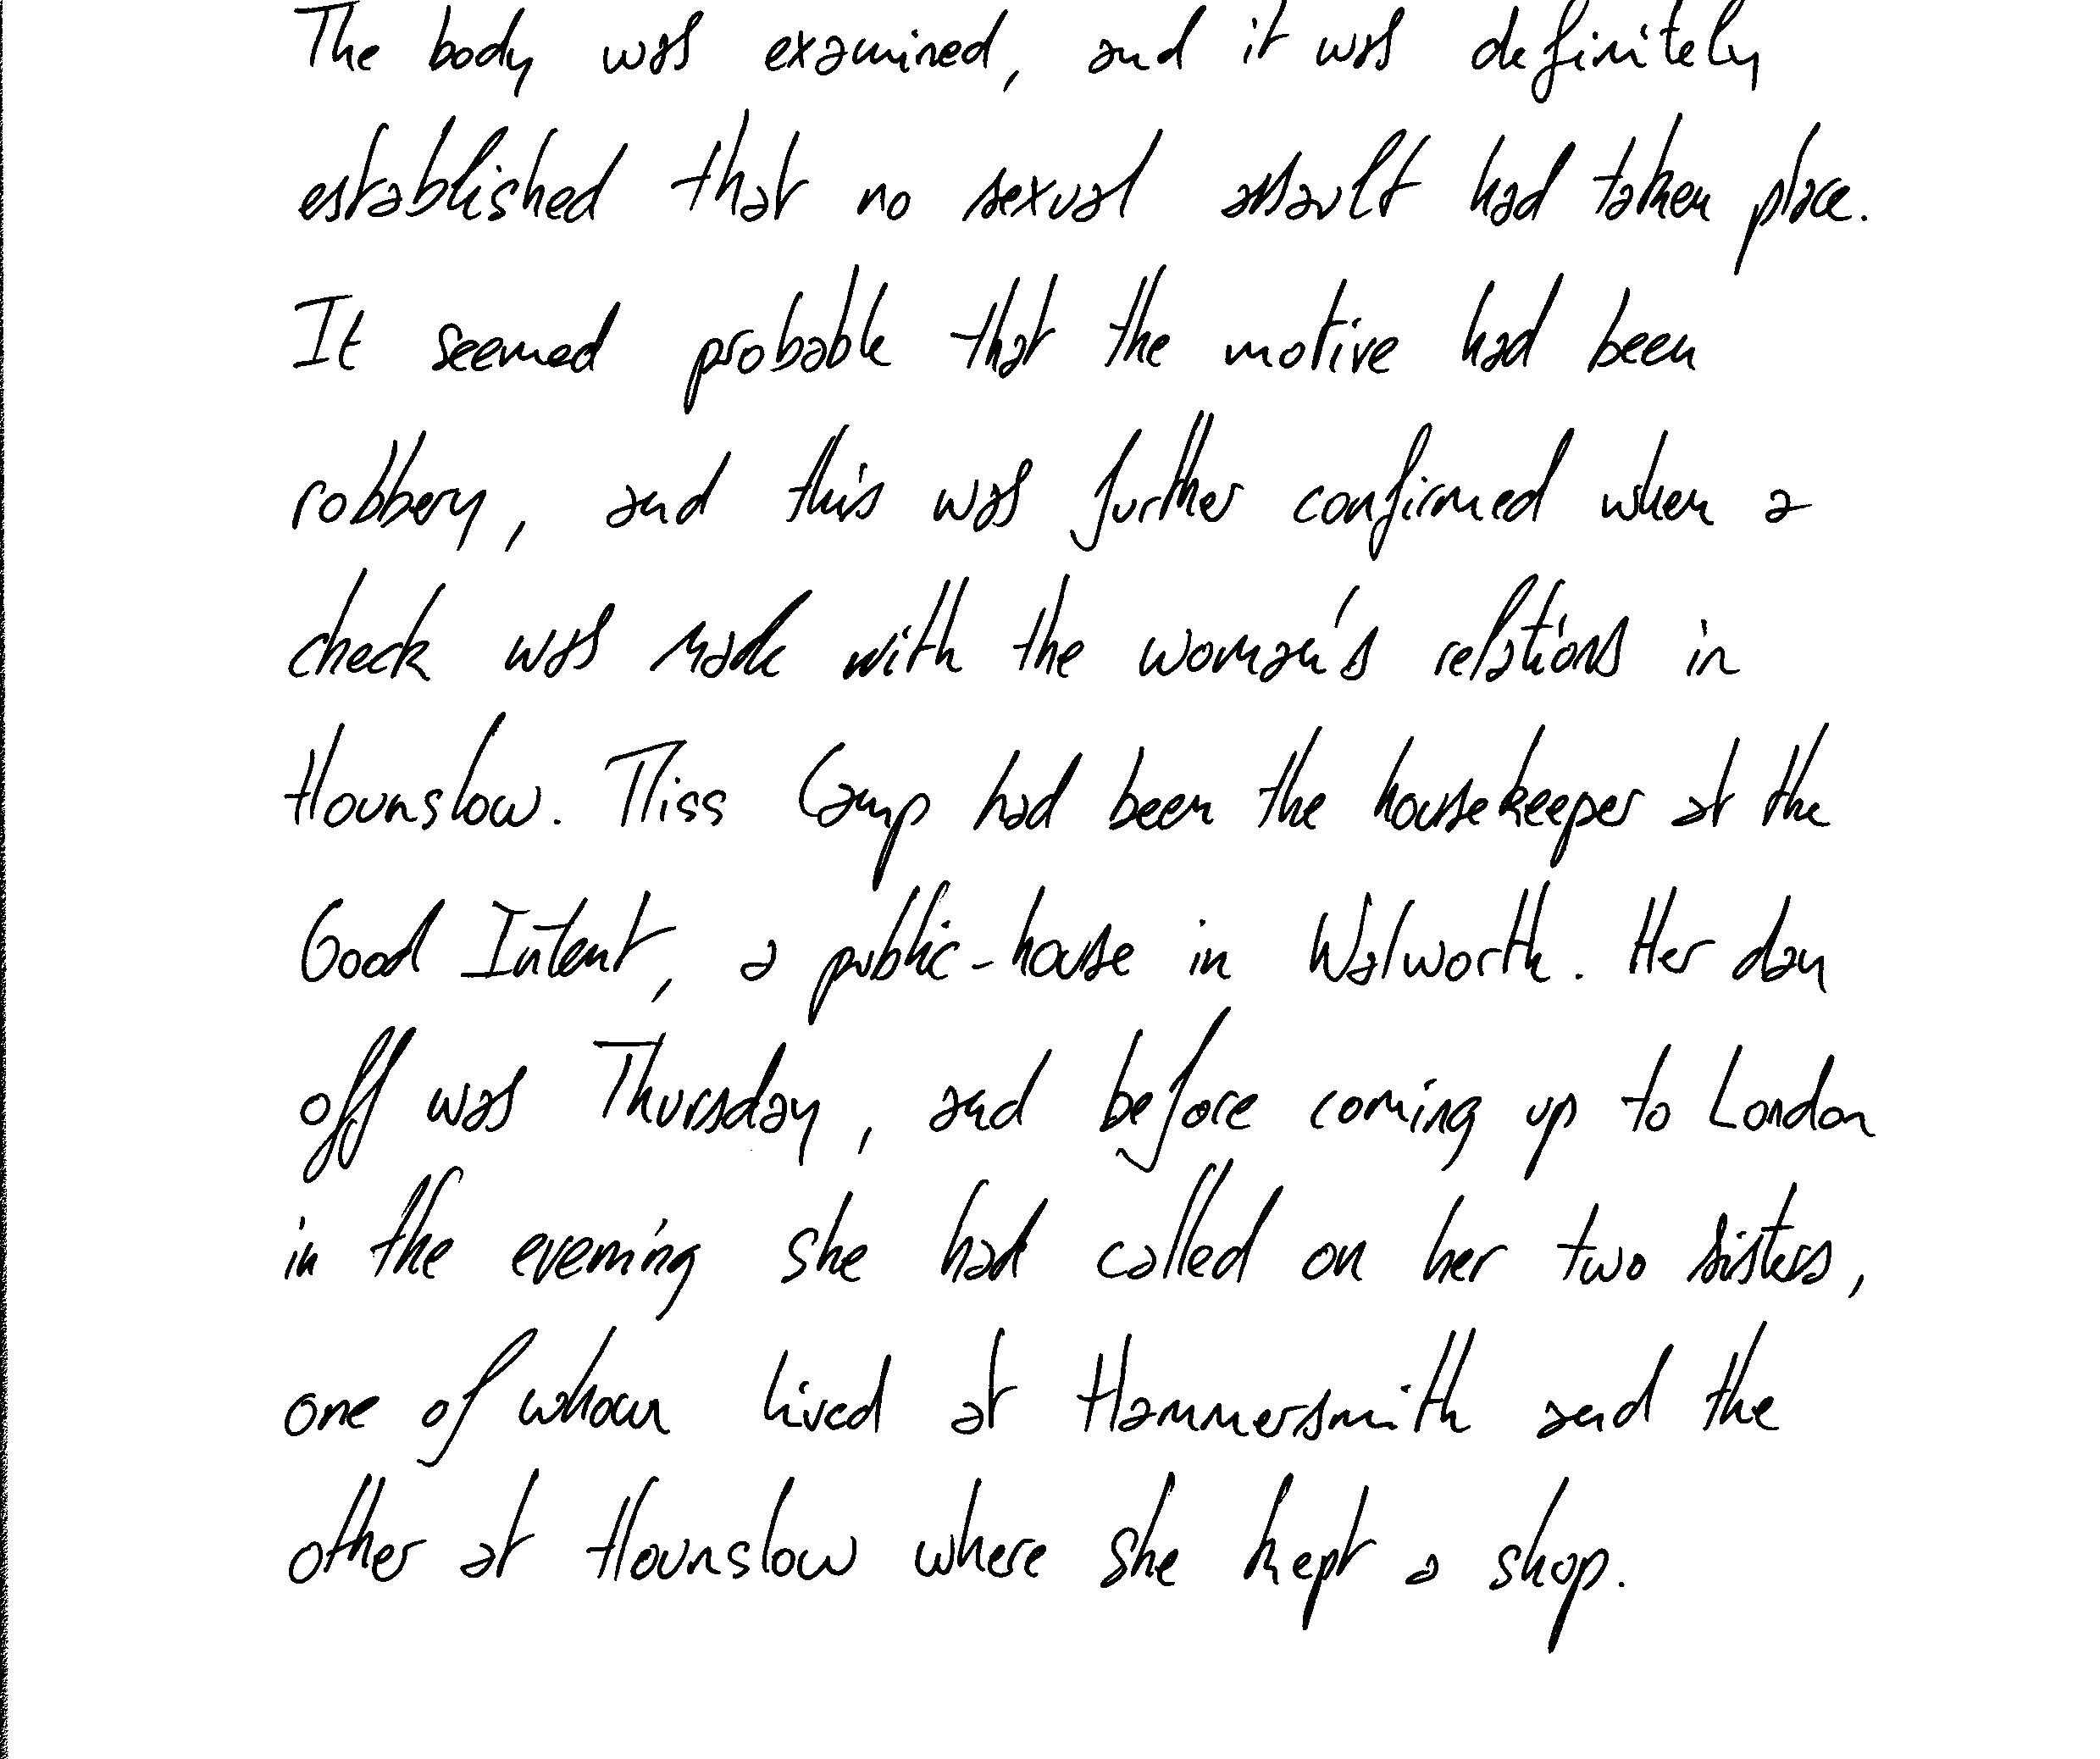 The body was examined, and it was definitely
established that no sexual assault had taken place.
It seemed probable that the motive had been
robbery, and this was further confirmed when a
check was made with the woman's relations in
Hounslow. Miss Camp had been the housekeeper at the
Good Intent, a public-house in Walworth. Her day
off was Thursday, and before coming up to London
in the evening she had called on her two sisters,
one of whom lived at Hammersmith and the
other at Hounslow where she kept a shop.